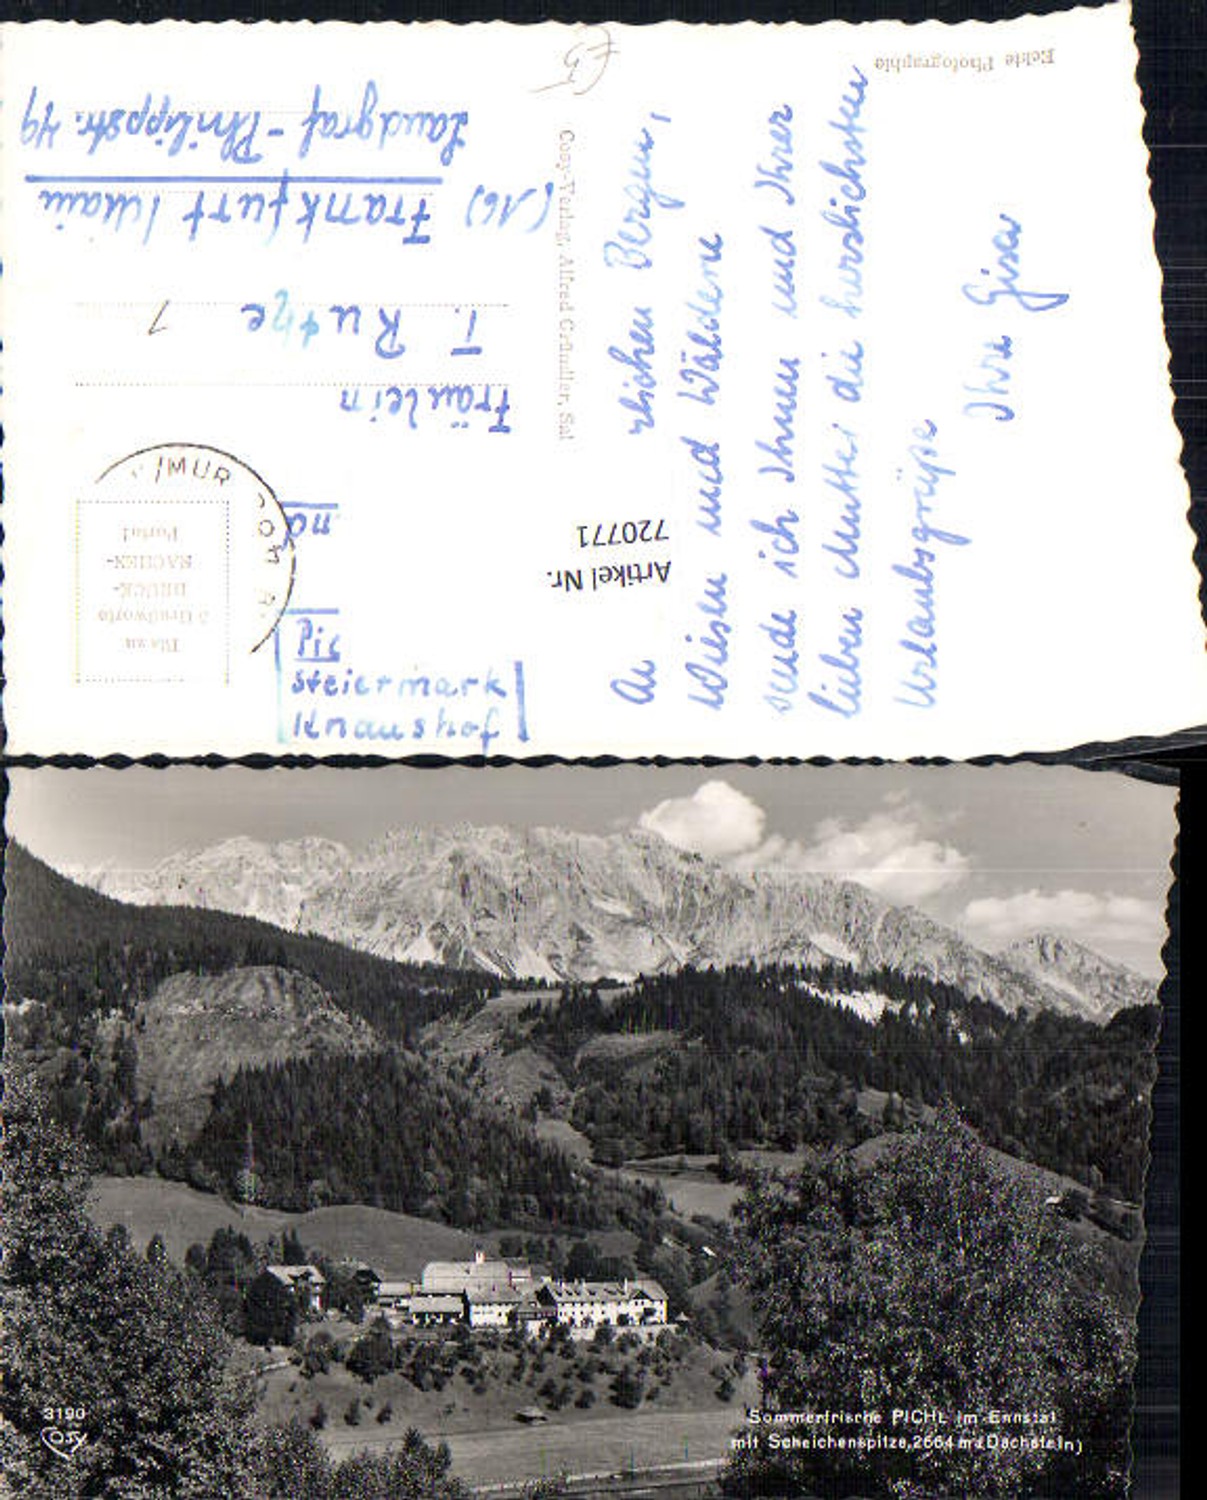 Echte Photographie
Cosy-Verlag, Alfred Gründler, Sal
Artikel Nr.
720771
Knaushof
Steiermark
/MUR
Bis zu
5 Grußworte
DRUCK-
SACHEN-
Porto!
Fräulein
T. Rutze
(16) Frankfurt /Main
Landgraf-Philippstr. 49
rlichen Bergen,
Wiesen und Wäldern
sende ich Ihnen und Ihrer
lieben Mutter die herzlichsten
Urlaubsgrüße
Ihre Gisa
3190
COSY
Sommerfrische PICHL im Ennstal
mit Scheichenspitze, 2664 m (Dachstein)